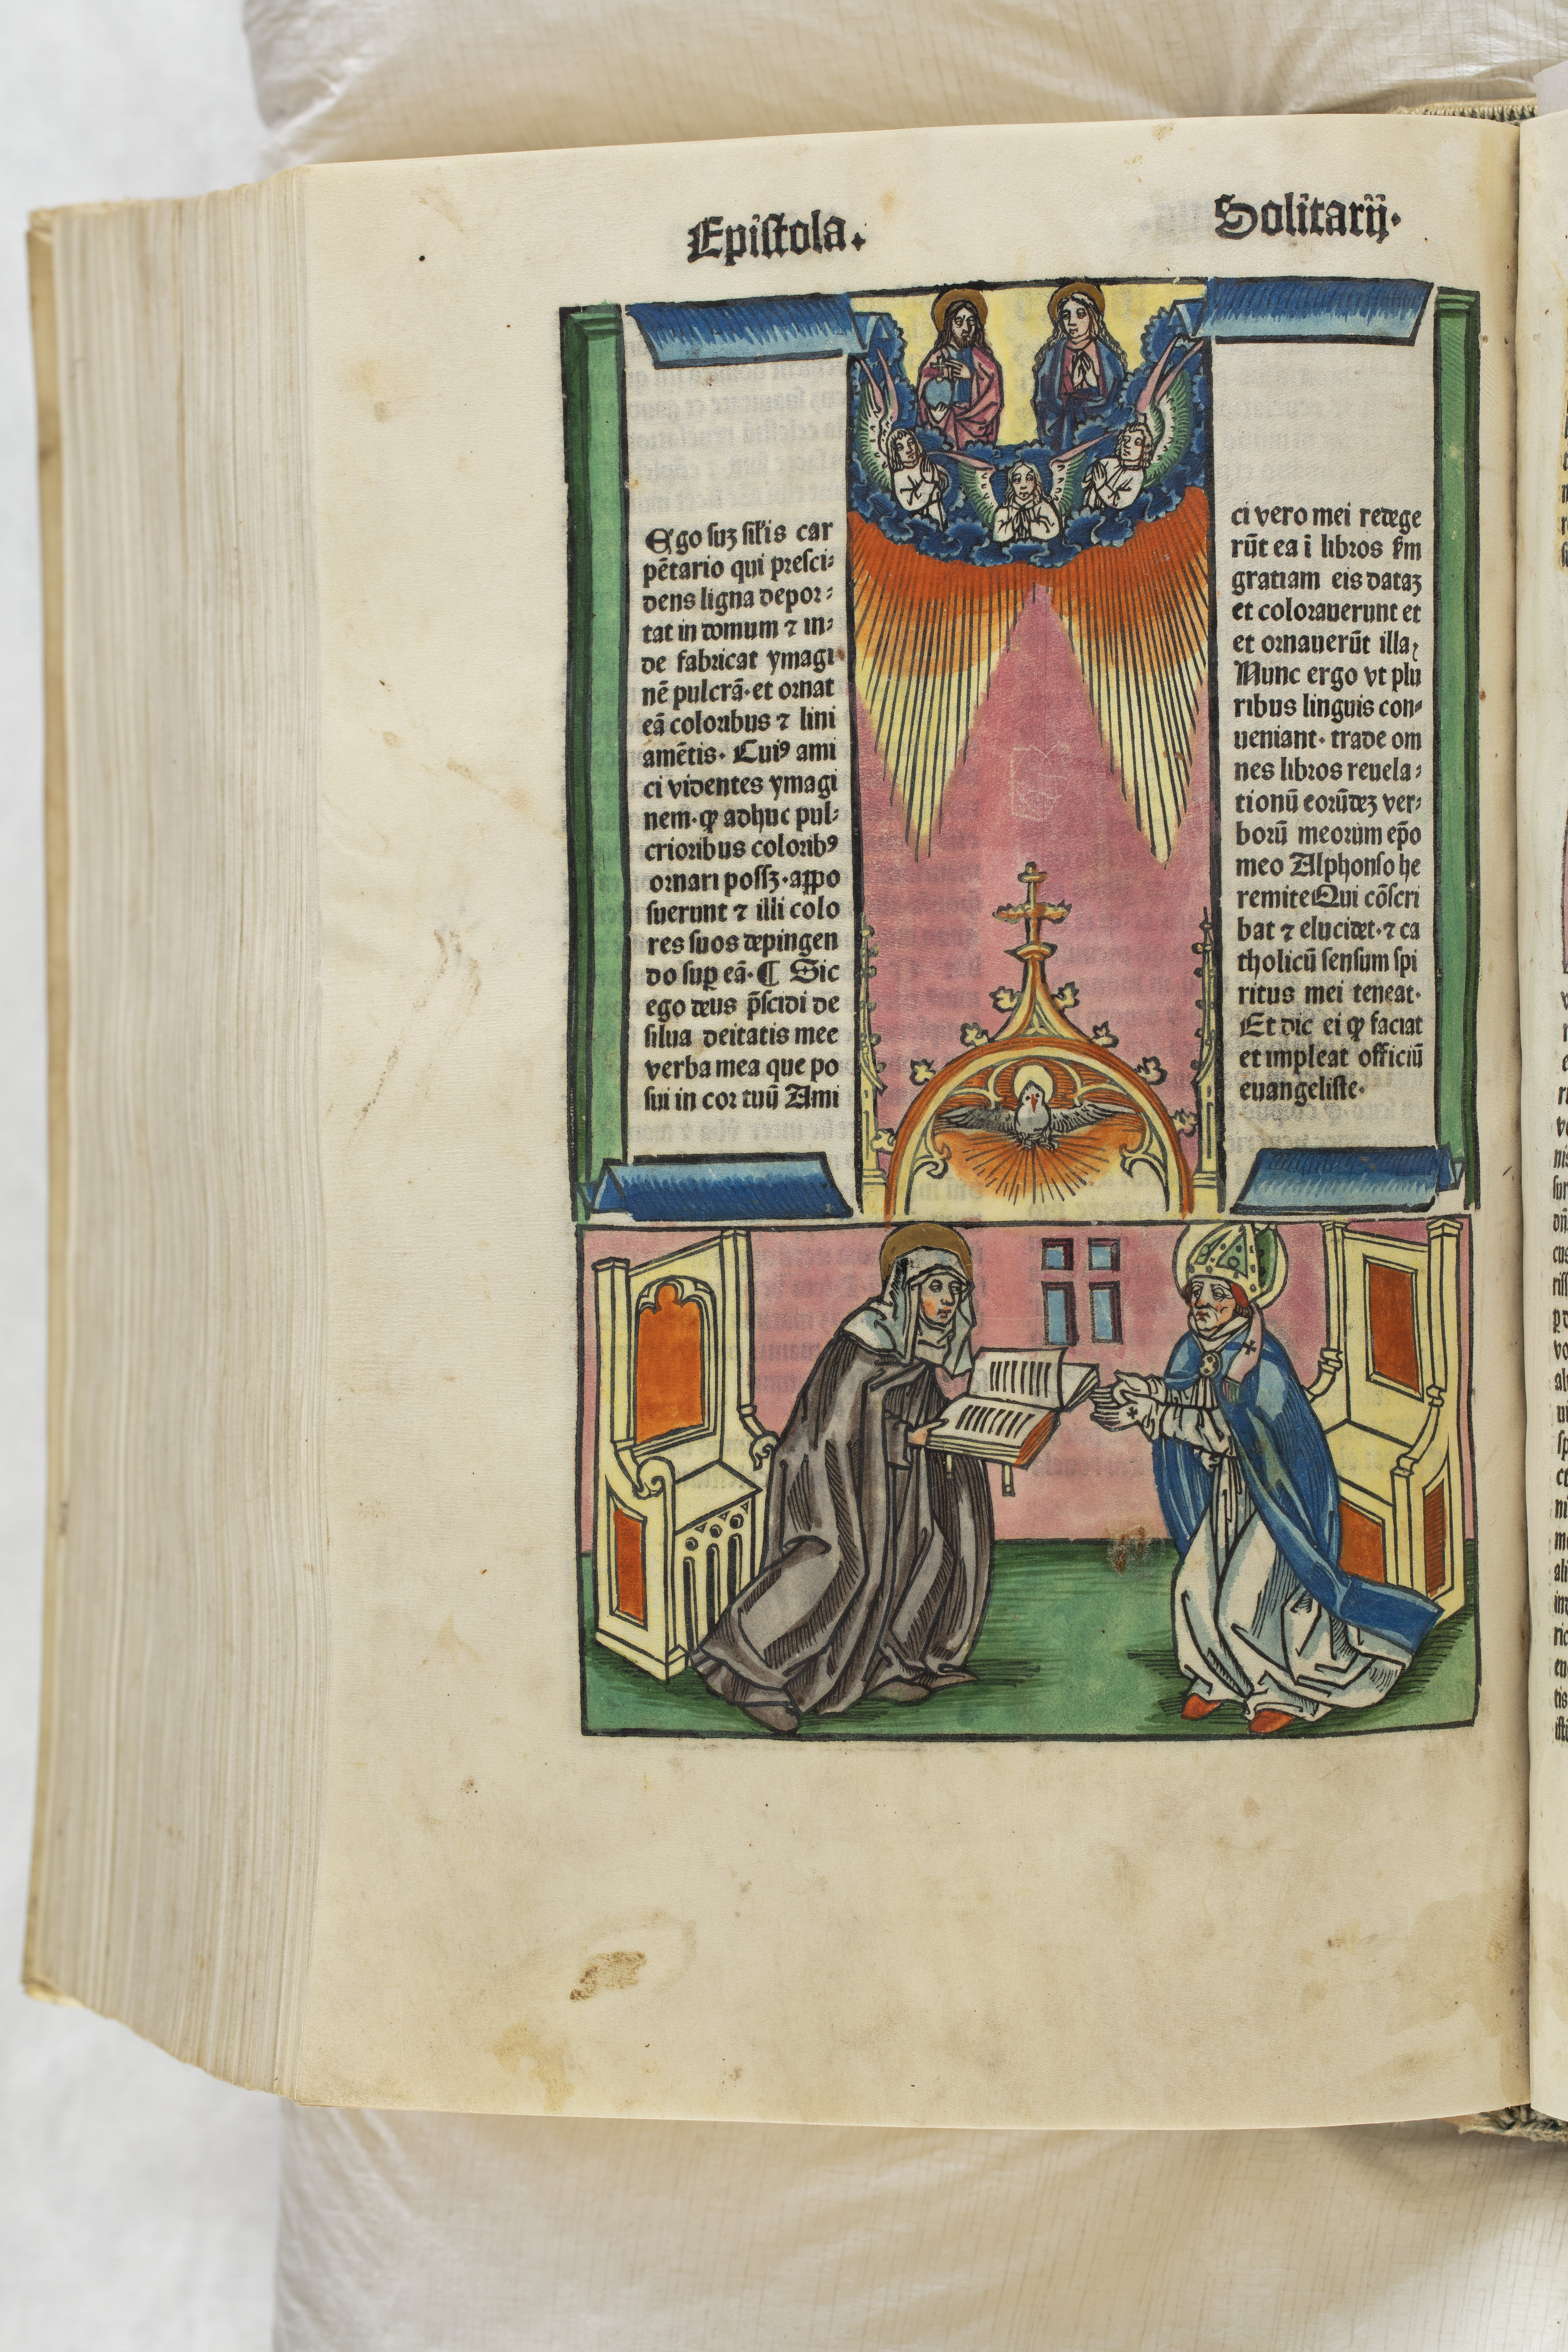 Epistola.
Solitarij.
Ego suꝫ siľis car
pẽtario qui presci⸗
dens ligna depor⸗
tat in domum ⁊ in⸗
de fabricat ymagi
nẽ pulcrã·et ornat
eã coloribus ⁊ lini
amẽtis· Cuiꝰ ami
ci videntes ymagi
nem·ꝙ adhuc pul⸗
crioribus coloribꝰ
ornari possꝫ·appo
suerunt ⁊ illi colo
res suos depingen
do suꝑ eã·¶ Sic
ego deus p̃scidi de
silua deitatis mee
verba mea que po
sui in cor tuũ Ami
ci vero mei redege
rũt ea ĩ libros ẜm
gratiam eis dataꝫ
et colorauerunt et
et ornauerũt illa
Nunc ergo vt plu
ribus linguis con⸗
ueniant· trade om
nes libros reuela⸗
tionũ eorũdeꝫ ver⸗
borũ meorum ep̃o
meo Alphonso he
remite Qui cõscri
bat ⁊ elucidet·⁊ ca
tholicũ sensum spi
ritus mei teneat·
Et dic ei ꝙ faciat
et impleat officiũ
euangeliste·